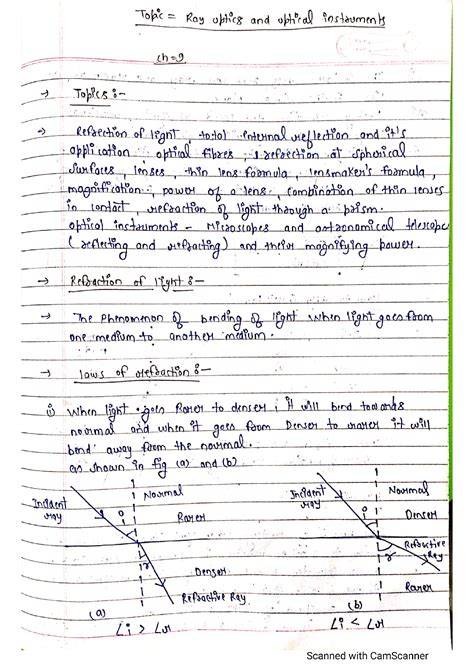 Topic = Ray optics and optical instruments
ch=9
→ Topics :-
→ Refraction of light, total internal reflection and it's
application optical fibres, refraction at spherical
surfaces, lenses, thin lens formula, lensmaker's formula,
magnification, power of a lens, combination of thin lenses
in contact refraction of light through a prism.
optical instruments - Microscopes and astronomical telescope
(reflecting and refracting) and their magnifying power.
→ Refraction of light :-
→ The Phenomenon of bending of light when light goes from
one medium to another medium.
→ laws of refraction :-
i) When light goes Rarer to denser, it will bend towards
normal and when it goes from Denser to rarer it will
bend away from the normal.
as shown in fig (a) and (b).
Incident ray
Normal
i
Rarer
r
Denser
Refractive Ray
(a)
∠i > ∠r
Incident ray
Normal
i
Denser
Refractive Ray
r
Rarer
(b)
∠i < ∠r
Scanned with CamScanner